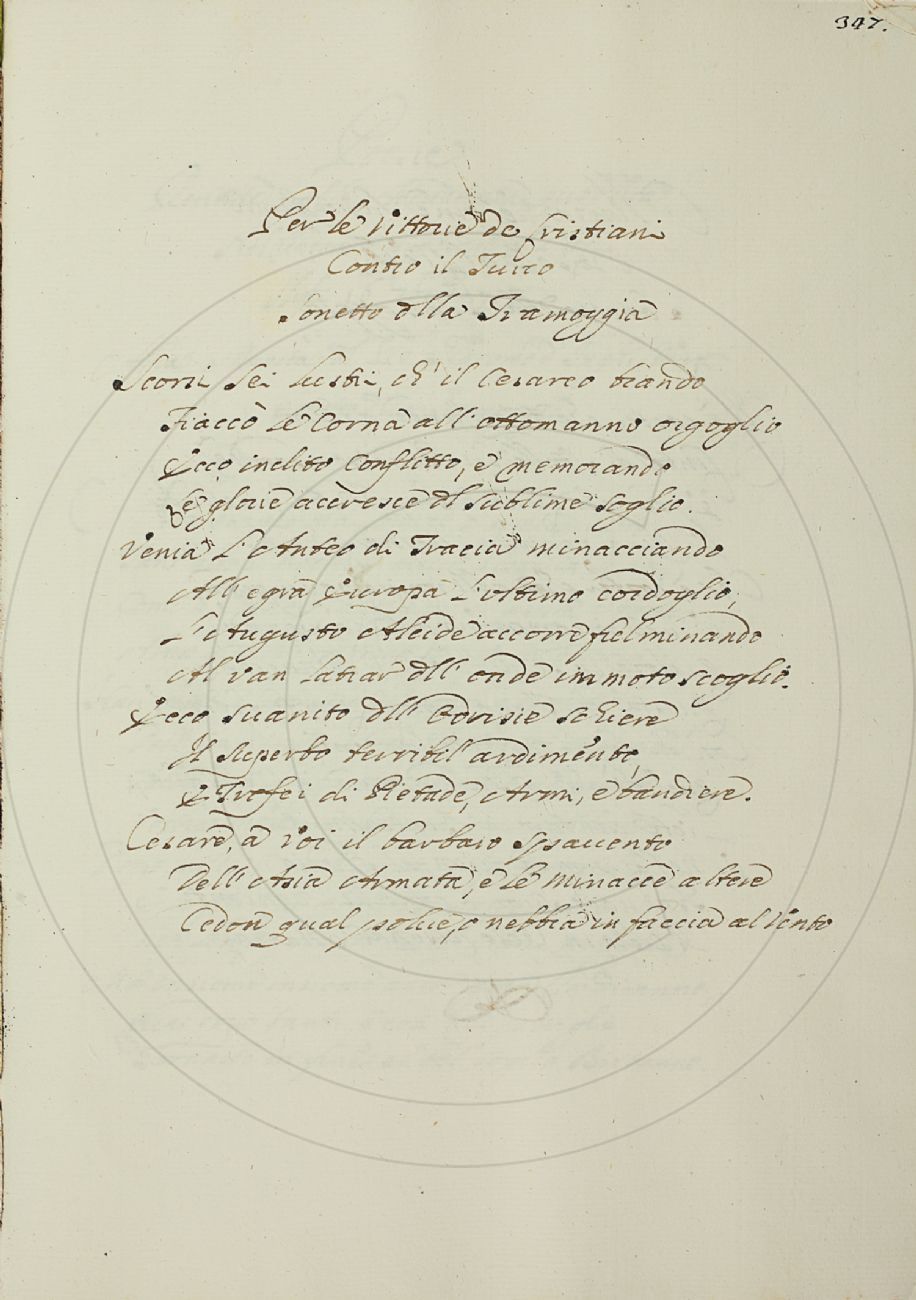 347.
Per le Vittorie de Cristiani
Contro il Turco
Sonetto della Tramoggia
Scorsi sei lustri, ch'il Cesareo brando
Fiaccò le Corna all' ottomanno orgoglio
Ecco inclito Conflitto, e memorando
Le glorie accresce al sublime soglio.
Venia L'Anteo di Tracia minacciando
All' egra Europa L'ultimo cordoglio,
L'Augusto Alcide accorre fulminando
Al van latrar dell' onde immoto scoglio.
Ecco suanito dell' schiere
Il superbo terribil' ardimento,
E Trofei di Pietade, Armi, e bandiere.
Cesare, a Voi il barbaro spauento
Dell' Asia Armata, e le minaccie altere
Cedon qual polue, o nebbia in faccia al Vento